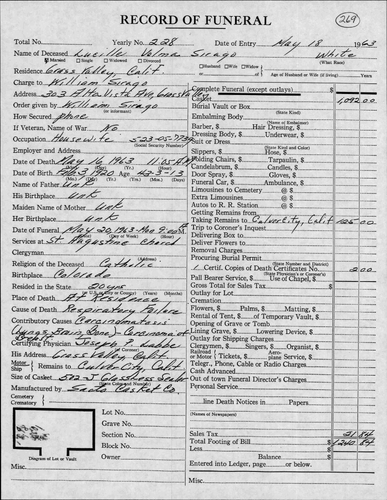 RECORD OF FUNERAL
269
Total No. Yearly No. 228 Date of Entry May 18 1963
Name of Deceased Lucille Velma Sirago White
Married Single Widowed Divorced Husband Wife Widow (What Race)
Residence Grass Valley, Calif. of Age of Husband or Wife (if living) Years
Charge to William Sirago
Address 303 Alta Vista Ave, Grass Valley
Order given by William Sirago
or informant
How Secured phone
If Veteran, Name of War No
Occupation Housewife 523-05-7739
(Social Security Number)
Employer and Address
Date of Death May 16, 1963 11:05 A.M.
Date of Birth Feb 3 1920 Age 43-3-13
Name of Father unk
His Birthplace unk
Maiden Name of Mother unk
Her Birthplace unk
Date of Funeral May 20, 1963 Mon 9:00 A.M.
Services at St Augustine Church
Clergyman
Religion of the Deceased Catholic
Birthplace Colorado
Resided in the State 20 yrs
Place of Death At Residence
Cause of Death Respiratory Failure
Contributory Causes Carcinomatosis
Carcinoma of
Certifying Physician Joseph P. Labbe
His Address Grass Valley, Calif
Motor Ship Remains to Culver City, Calif
Size of Casket
Manufactured by Casket Co.
Cemetery
Crematory
Lot No.
Grave No.
Section No.
Block No.
Owner
Diagram of Lot or Vault
Misc.
Complete Funeral (except outlays) 1,092.00
Casket
Burial Vault or Box
(State Kind)
Embalming Body
(Name of Embalmer)
Barber, $ Hair Dressing, $
Dressing Body, $ Underwear, $
Suit or Dress
(State Kind and Color)
Slippers, $ Hose, $
Folding Chairs, $ Tarpaulin, $
Candelabrum, $ Candles, $
Door Spray, $ Gloves, $
Funeral Car, $ Ambulance, $
Limousines to Cemetery @ $
Extra Limousines @ $
Autos to R. R. Station @ $
Getting Remains from
Taking Remains to Culver City, Calif 125.00
Trip to Coroner's Inquest
Delivering Box to
Deliver Flowers to
Removal Charges
Procuring Burial Permit
(State Number and District)
1 Certif. Copies of Death Certificates No. 2.00
(State Person's or Coroner's)
Pall Bearer Service, $ Use of Chapel, $
Gross Total for Sales Tax $
Outlay for Lot
Cremation
Flowers, $ Palms, $ Matting, $
Rental of Tent, $ of Temporary Vault, $
Opening of Grave or Tomb
Lining Grave, $ Lowering Device, $
Outlay for Shipping Charges
Clergymen, $ Singers, $ Organist, $
Railroad or Motor Tickets, $ Aeroplane Service, $
Telegr., Phone, Cable or Radio Charges
Cash Advanced
Out of town Funeral Director's Charges
Personal Service
line Death Notices in Papers
(Names of Newspapers)
Sales Tax 21.84
Total Footing of Bill $ 1,240.84
Less
Balance $
Entered into Ledger, page or below.
Misc.